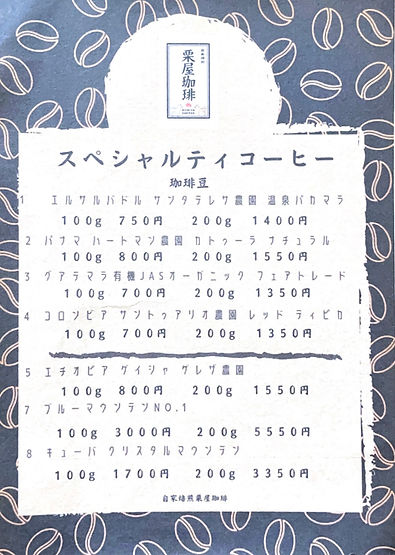 栗屋珈琲
スペシャルティコーヒー
珈琲豆
1 エルサルバドル サンタテレサ農園 温泉パカマラ
100g 750円 200g 1400円
2 パナマ ハートマン農園 カトゥーラ ナチュラル
100g 800円 200g 1550円
3 グアテマラ有機JASオーガニック フェアトレード
100g 700円 200g 1350円
4 コロンビア サントゥアリオ農園 レッド ティピカ
100g 700円 200g 1350円
5 エチオピア ゲイシャ ゲレザ農園
100g 800円 200g 1550円
7 ブルーマウンテンNO.1
100g 3000円 200g 5550円
8 キューバ クリスタルマウンテン
100g 1700円 200g 3350円
自家焙煎栗屋珈琲